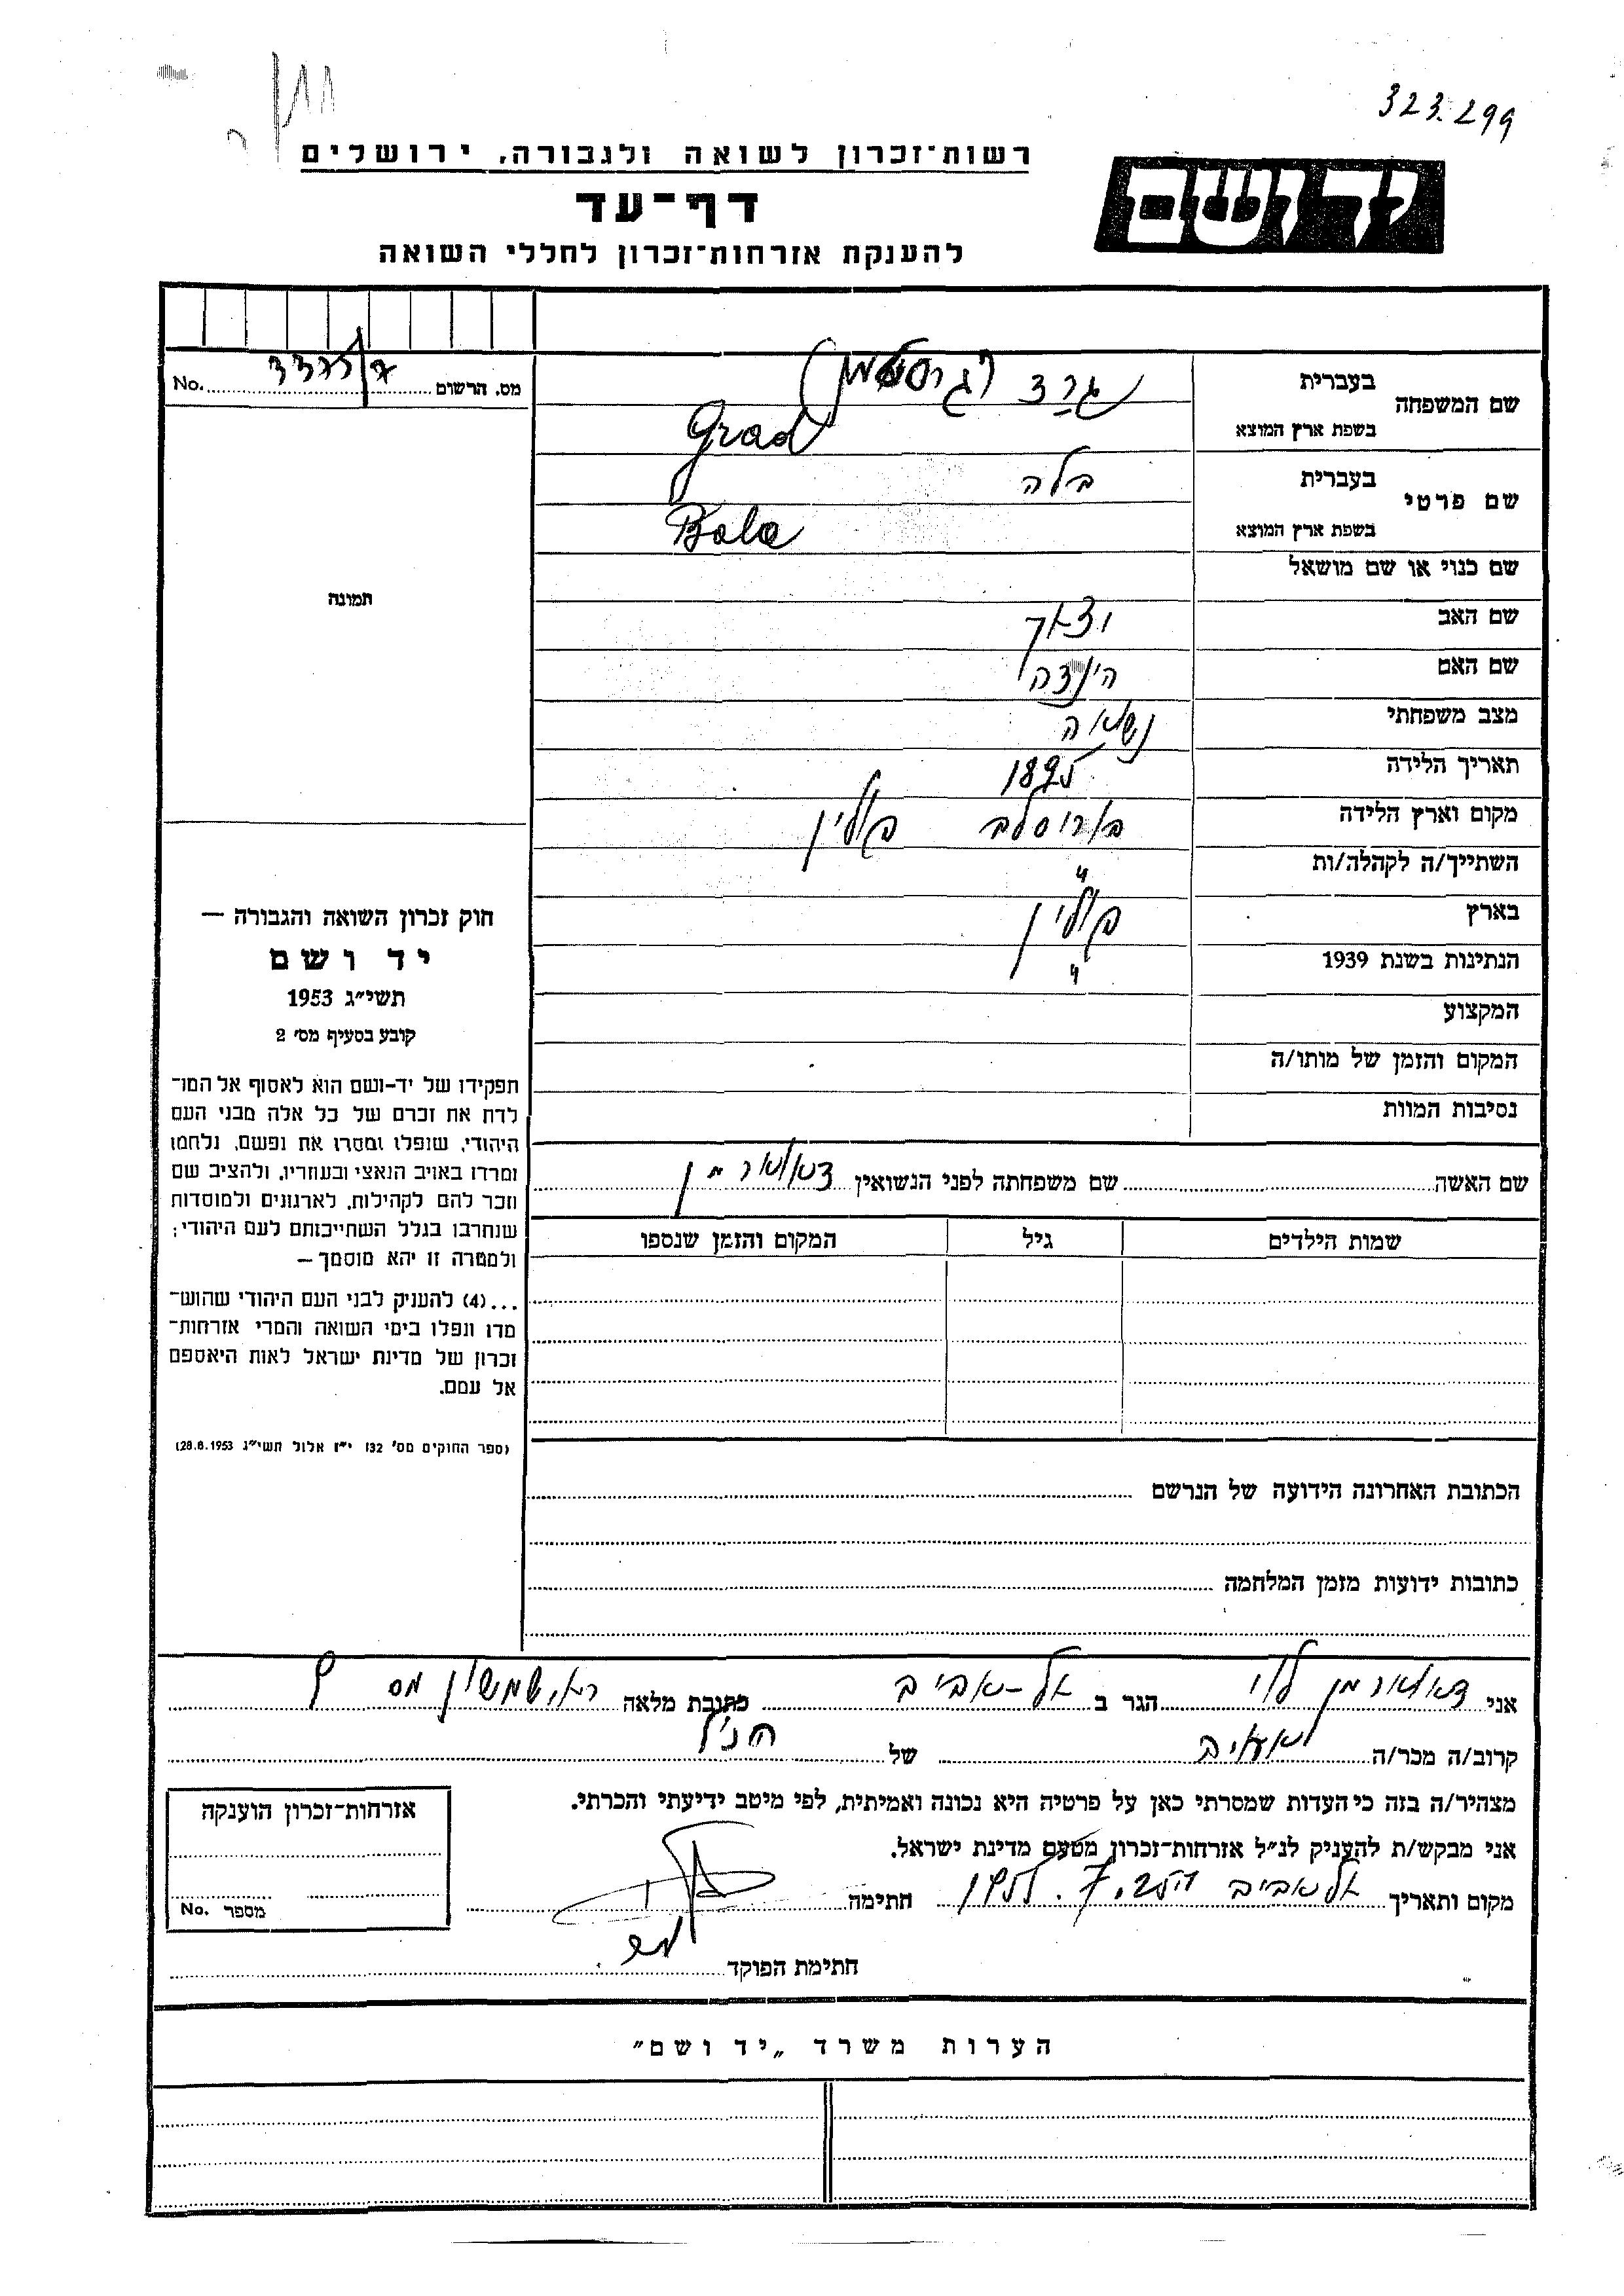 323.299
רשות־זכרון לשואה ולגבורה, ירושלים
יד ושם
דף־עד
להענקת אזרחות־זכרון לחללי השואה
מס. הרשום No.
שם המשפחה
בעברית גרד
בשפת ארץ המוצא Grad
שם פרטי
בעברית בלה
בשפת ארץ המוצא Bala
שם כנוי או שם מושאל
תמונה
שם האב יצחק
שם האם הינדה
מצב משפחתי נשואה
תאריך הלידה 1895
מקום וארץ הלידה פולין
השתייך/ה לקהלה/ות "
בארץ פולין
הנתינות בשנת 1939 "
המקצוע
המקום והזמן של מותו/ה
נסיבות המוות
חוק זכרון השואה והגבורה —
יד ושם
תשי״ג 1953
קובע בסעיף מס׳ 2
תפקידו של יד-ושם הוא לאסוף אל המו־
לדת את זכרם של כל אלה מבני העם
היהודי, שנפלו ומסרו את נפשם, נלחמו
ומרדו באויב הנאצי ובעוזריו, ולהציב שם
וזכר להם לקהילות, לארגונים ולמוסדות
שנחרבו בגלל השתייכותם לעם היהודי;
ולמטרה זו יהא מוסמך —
...(4) להעניק לבני העם היהודי שהוש־
מדו ונפלו בימי השואה והמרי אזרחות־
זכרון של מדינת ישראל לאות היאספם
אל עמם.
(ספר החוקים מס׳ 132 י״ז אלול תשי״ג 28.8.1953)
שם האשה שם משפחתה לפני הנשואין
שמות הילדים גיל המקום והזמן שנספו
הכתובת האחרונה הידועה של הנרשם
כתובות ידועות מזמן המלחמה
אני לוי הגר ב תל-אביב כתובת מלאה שמשון מס 9
קרוב/ה מכר/ה של הנ״ל
מצהיר/ה בזה כי העדות שמסרתי כאן על פרטיה היא נכונה ואמיתית, לפי מיטב ידיעתי והכרתי.
אני מבקש/ת להעניק לנ״ל אזרחות־זכרון מטעם מדינת ישראל.
מקום ותאריך תל אביב חתימה
חתימת הפוקד
אזרחות־זכרון הוענקה
מספר No.
הערות משרד „יד ושם"